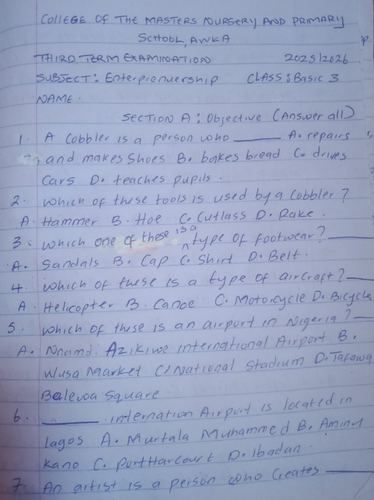 COLLEGE OF THE MASTERS NURSERY AND PRIMARY
SCHOOL, AWKA
THIRD TERM EXAMINATION 2025/2026
SUBJECT: Enterpienuership CLASS: Basic 3
NAME.
SECTION A: Objective (Answer all)
1. A Cobbler is a person who ____ A. repairs
and makes Shoes B. bakes bread C. drives
Cars D. teaches pupils.
2. Which of these tools is used by a Cobbler?
A. Hammer B. Hoe C. Cutlass D. Rake.
3. Which one of these is a type of footwear? __
A. Sandals B. Cap C. Shirt D. Belt.
4. Which of these is a type of aircraft? __
A. Helicopter B. Canoe C. Motorcycle D. Bicycle
5. Which of these is an airport in Nigeria? __
A. Nnamdi Azikiwe international Airport B.
Wusa Market C. National Stadium D. Tafawa
Balewa Square
6. ____ internation Airport is located in
lagos A. Murtala Muhammed B. Aminu
Kano C. PortHarcourt D. Ibadan.
7. An artist is a person who Creates ____